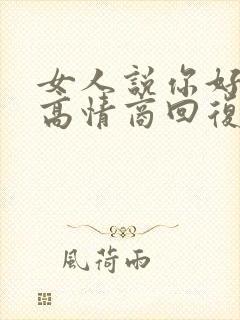 女人説你好
高情商回復
風荷雨